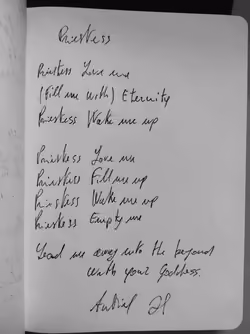 Priestess
Priestess Love me
(Fill me with) Eternity
Priestess Wake me up
Priestess Love me
Priestess Fill me up
Priestess Wake me up
Priestess Empty me
Lead me away into the beyond
with your Goddess.